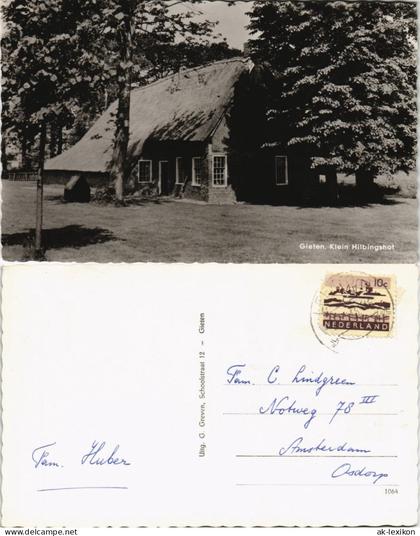 Gieten, Klein Hilbingshof
10c
NEDERLAND
Uitg. G. Greven, Schoolstraat 12 – Gieten
Fam. Huber
Fam. C. Lindgreen
Notweg 78 III
Amsterdam
Osdorp
1064
www.ak-lexikon.de
ak-lexikon